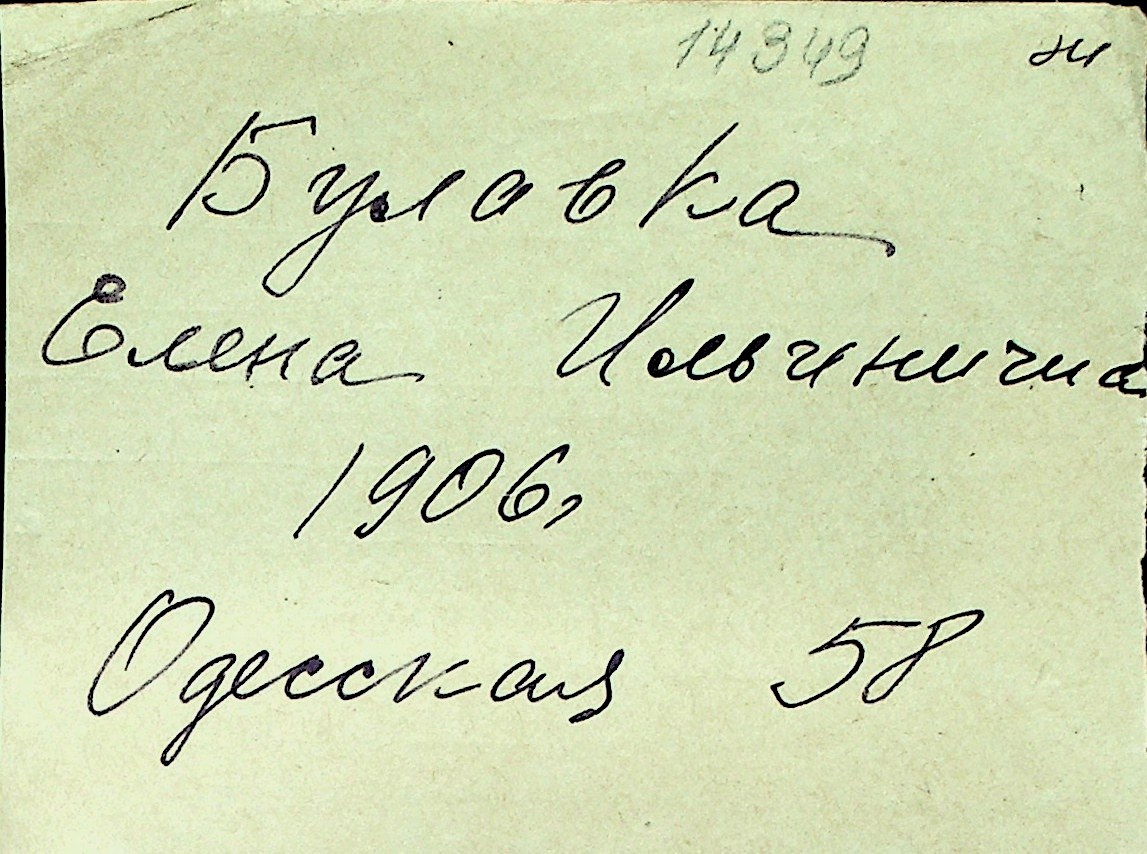 14349 ж
Булавка
Елена Ильинична
1906,
Одесская 58